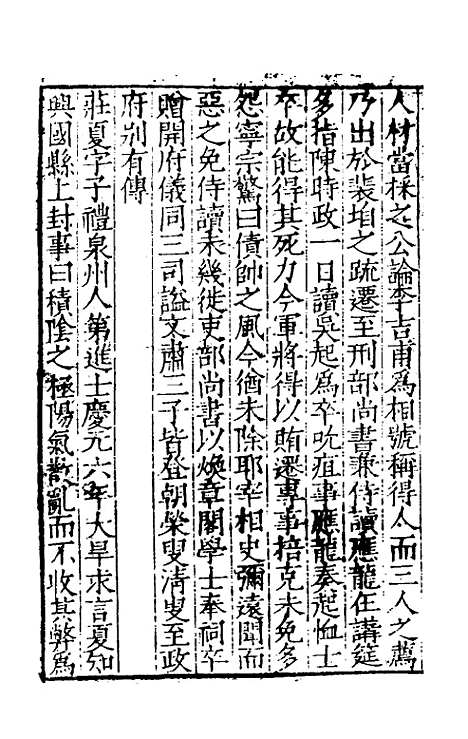 人材當採之公論李吉甫爲相號稱得人而三人之薦
乃出於裴垍之疏遷至刑部尚書兼侍讀應龍在講筵
多指陳時政一日讀吳起爲卒吮疽事應龍奏起恤士
卒故能得其死力今軍將得以賄遷專事掊克未免多
怨寧宗驚曰債帥之風今猶未除耶宰相史彌遠聞而
惡之免侍讀未幾徙吏部尚書以煥章閣學士奉祠卒
贈開府儀同三司謚文肅三子皆登朝榮叟清叟至政
府别有傳
莊夏字子禮泉州人第進士慶元六年大旱求言夏知
興國縣上封事曰積陰之極陽氣散亂而不收其弊爲